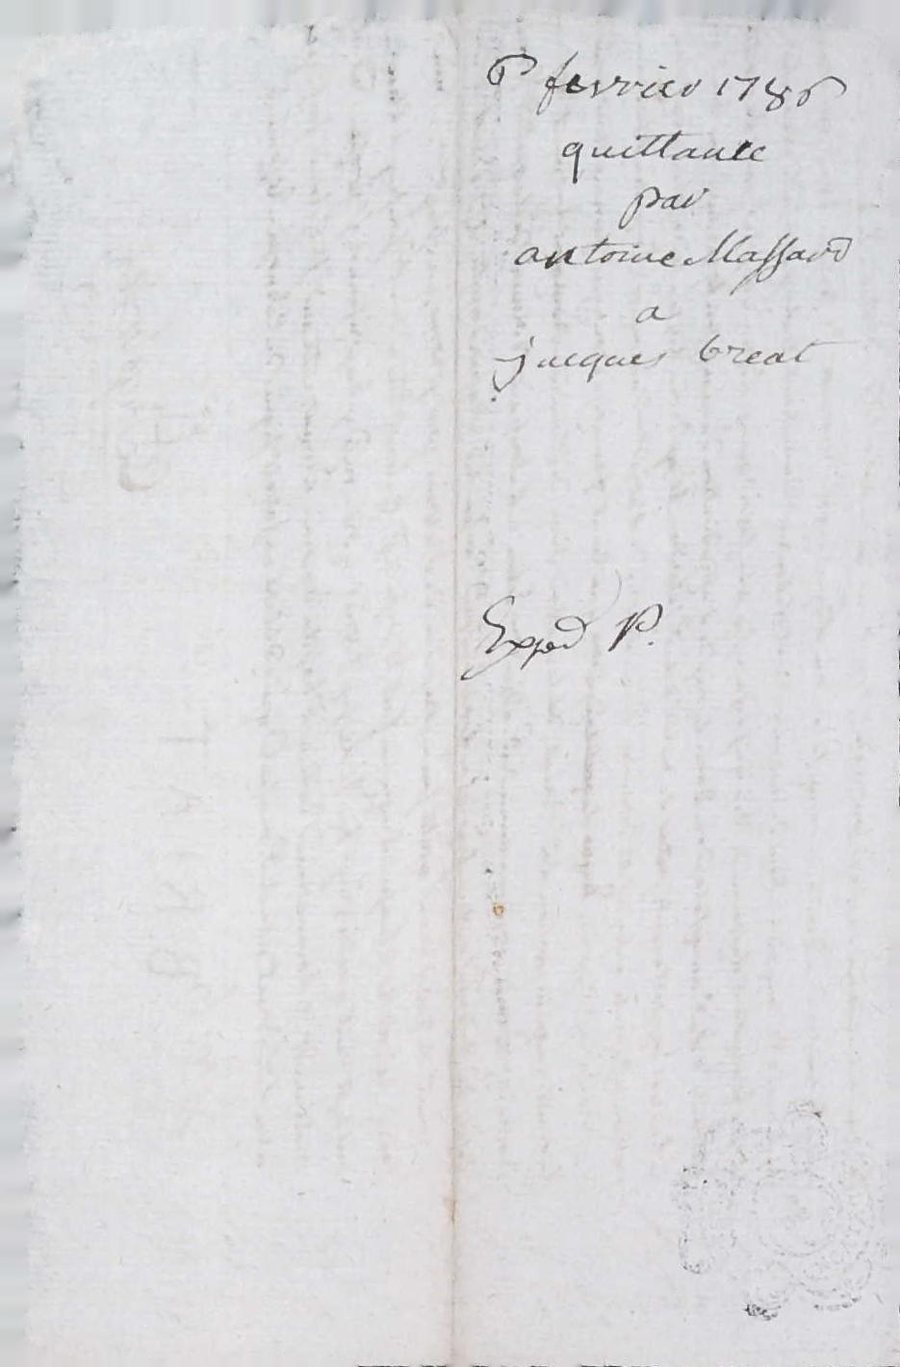 6 fevrier 1786
quittance
par
antoine Massard
a
jacques breat
Exped P.